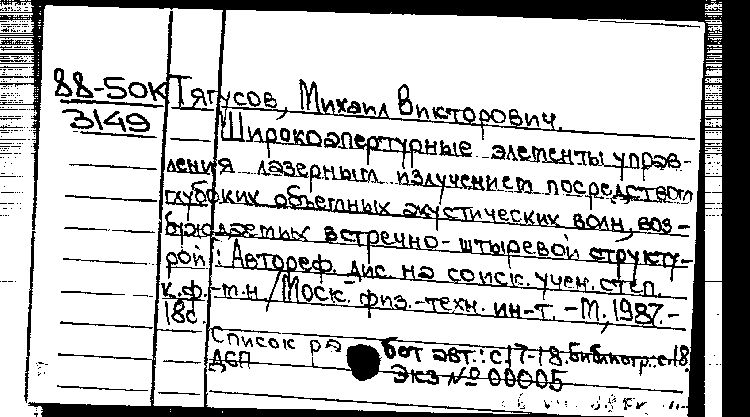 88-50К Тягусов, Михаил Викторович.
3149
Широкоапертурные элементы управ-
ления лазерным излучением посредством
глубоких объемных акустических волн, воз-
буждаемых встречно-штыревой структу-
рой: Автореф. дис. на соиск. учен. степ.
к.ф.-т.н./Моск. физ.-техн. ин-т. -М., 1987.-
18с.
Список работ авт.: с.17-18. Библиогр.: с.18
ДСП
Экз № 00005